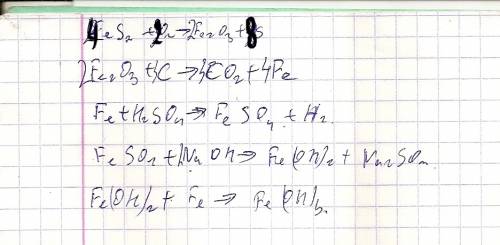 4FeS2 + 3O2 → 2Fe2O3 + 8S
2Fe2O3 + 3C → 3CO2 + 4Fe
Fe + H2SO4 → FeSO4 + H2.
FeSO4 + 2NaOH → Fe(OH)2 + Na2SO4
Fe(OH)2 + Fe → Fe(OH)3.